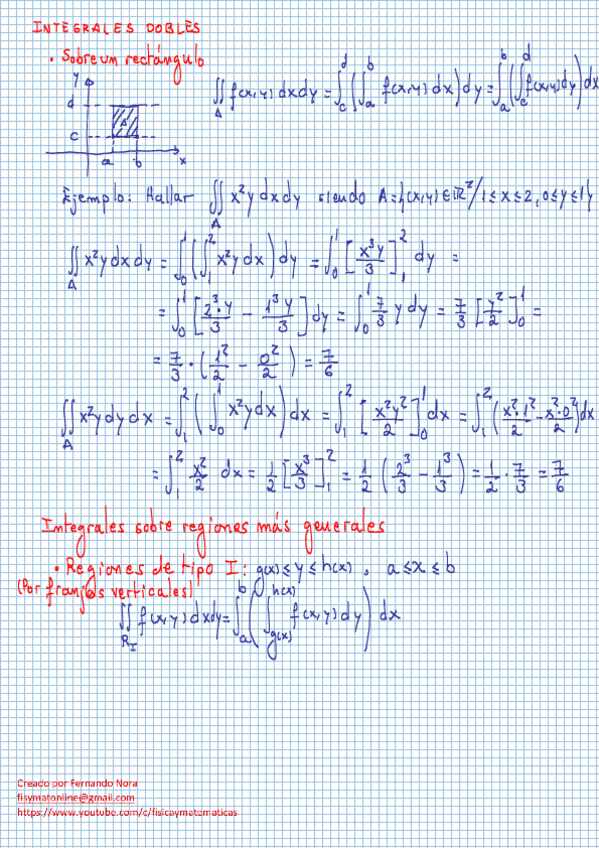 INTEGRALES DOBLES
• Sobre un rectángulo
y
d
A
c
a b x
∬_A f(x,y) dxdy = ∫_c^d (∫_a^b f(x,y) dx) dy = ∫_a^b (∫_c^d f(x,y) dy) dx
Ejemplo: Hallar ∬_A x²y dxdy siendo A={(x,y)∈ℝ²/1≤x≤2, 0≤y≤1}
∬_A x²y dx dy = ∫_0^1 (∫_1^2 x²y dx) dy = ∫_0^1 [x³y/3]_1^2 dy =
= ∫_0^1 [2³·y/3 - 1³y/3] dy = ∫_0^1 7/3 y dy = 7/3 [y²/2]_0^1 =
= 7/3 · (1²/2 - 0²/2) = 7/6
∬_A x²y dy dx = ∫_1^2 (∫_0^1 x²y dx) dx = ∫_1^2 [x²y²/2]_0^1 dx = ∫_1^2 (x²·1²/2 - x²·0²/2) dx
= ∫_1^2 x²/2 dx = 1/2 [x³/3]_1^2 = 1/2 (2³/3 - 1³/3) = 1/2 · 7/3 = 7/6
Integrales sobre regiones más generales
• Regiones de tipo I: g(x) ≤ y ≤ h(x), a ≤ x ≤ b
(Por franjas verticales)
∬_{R_I} f(x,y) dxdy = ∫_a^b (∫_{g(x)}^{h(x)} f(x,y) dy) dx
Creado por Fernando Nora
fisymatonline@gmail.com
https://www.youtube.com/c/fisicaymatematicas